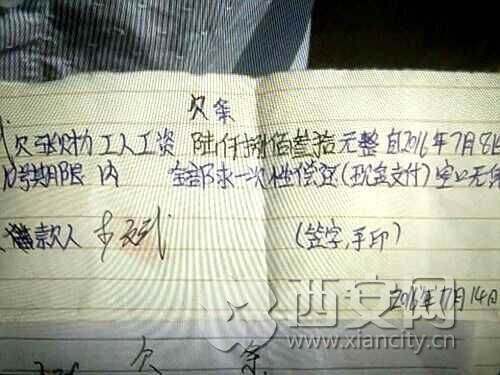 欠条
欠张财力工人工资 陆仟捌佰叁拾元整 自2016年7月8日
10号期限内 全部求一次性偿还(现金支付)空口无
款人 (签字,手印)
2016年7月14日
西安网
www.xiancity.cn
欠 条